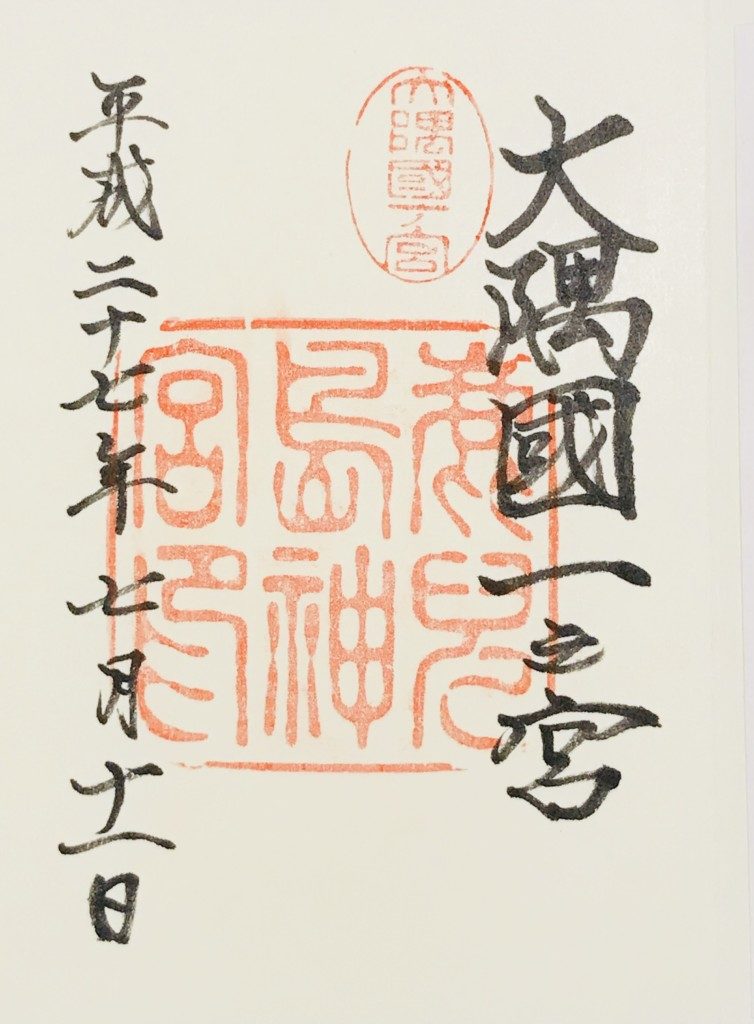 大隅國一之宮
大隅國一ノ宮
鹿兒
島神
宮印
平成二十七年七月十一日